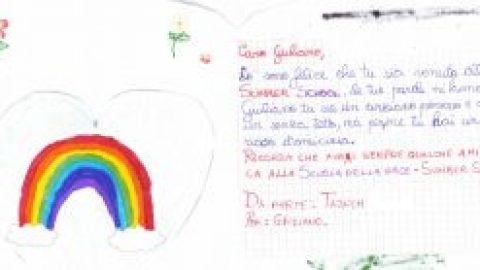 Caro Giuliano,
Io sono felice che tu sia venuto
SUMMER SCHOOL, le tue parole mi hanno
Giuliano tu sei un anziano
un senza tetto, ma per me tu hai un
d'amicizia.
RICORDA CHE AVRAI SEMPRE QUALCHE AMI
CA ALLA SCUOLA DELLA PACE - SUMMER S
DA PARTE:
PER: GIULIANO.